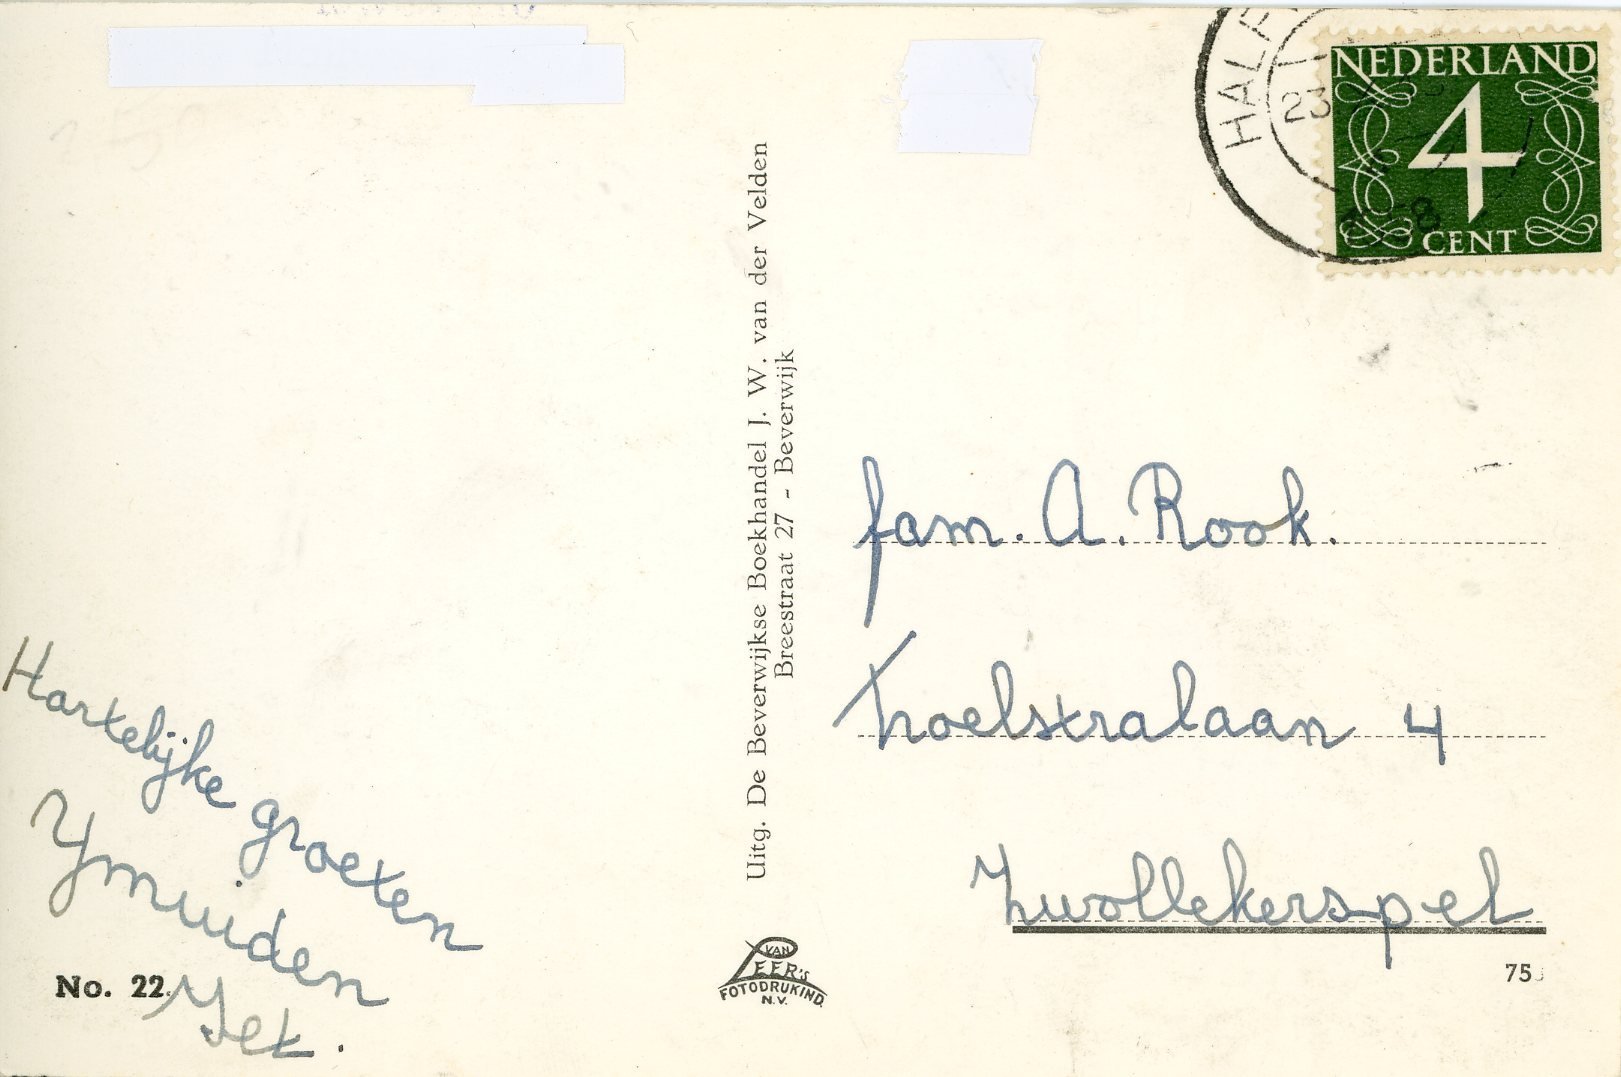 HALF
23
8
NEDERLAND
4
CENT
Uitg. De Beverwijkse Boekhandel J. W. van der Velden
Breestraat 27 - Beverwijk
fam. A. Rook.
Troelstralaan 4
Zwollekerspel
Hartelijke groeten
Ymuiden
No. 22.
VAN
LEER's
FOTODRUKIND.
N.V.
75